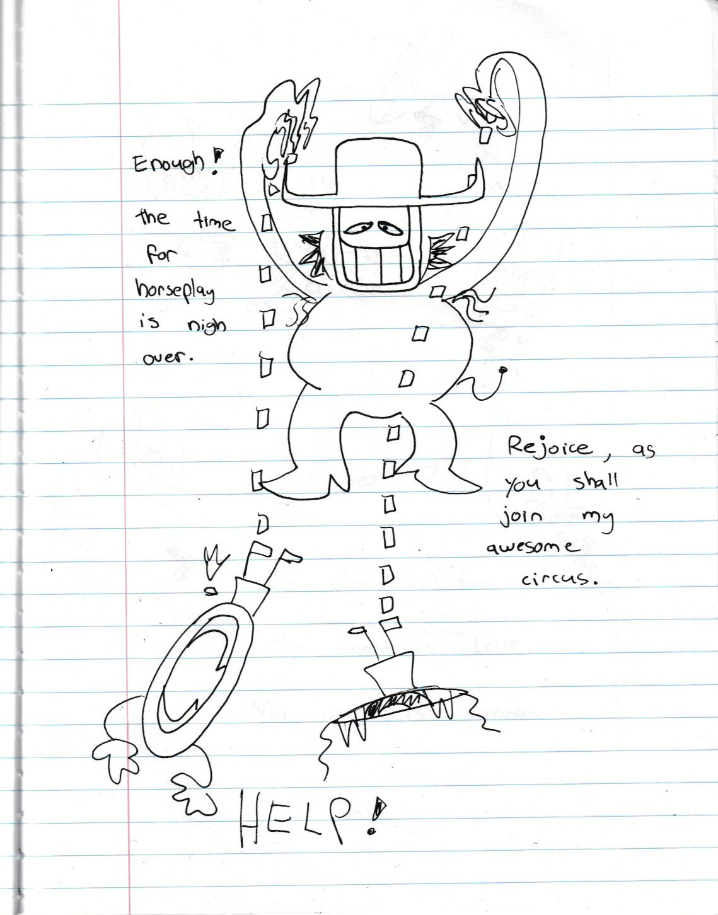 Enough!
the time
for
horseplay
is nigh
over.
Rejoice, as
you shall
join my
awesome
circus.
HELP!